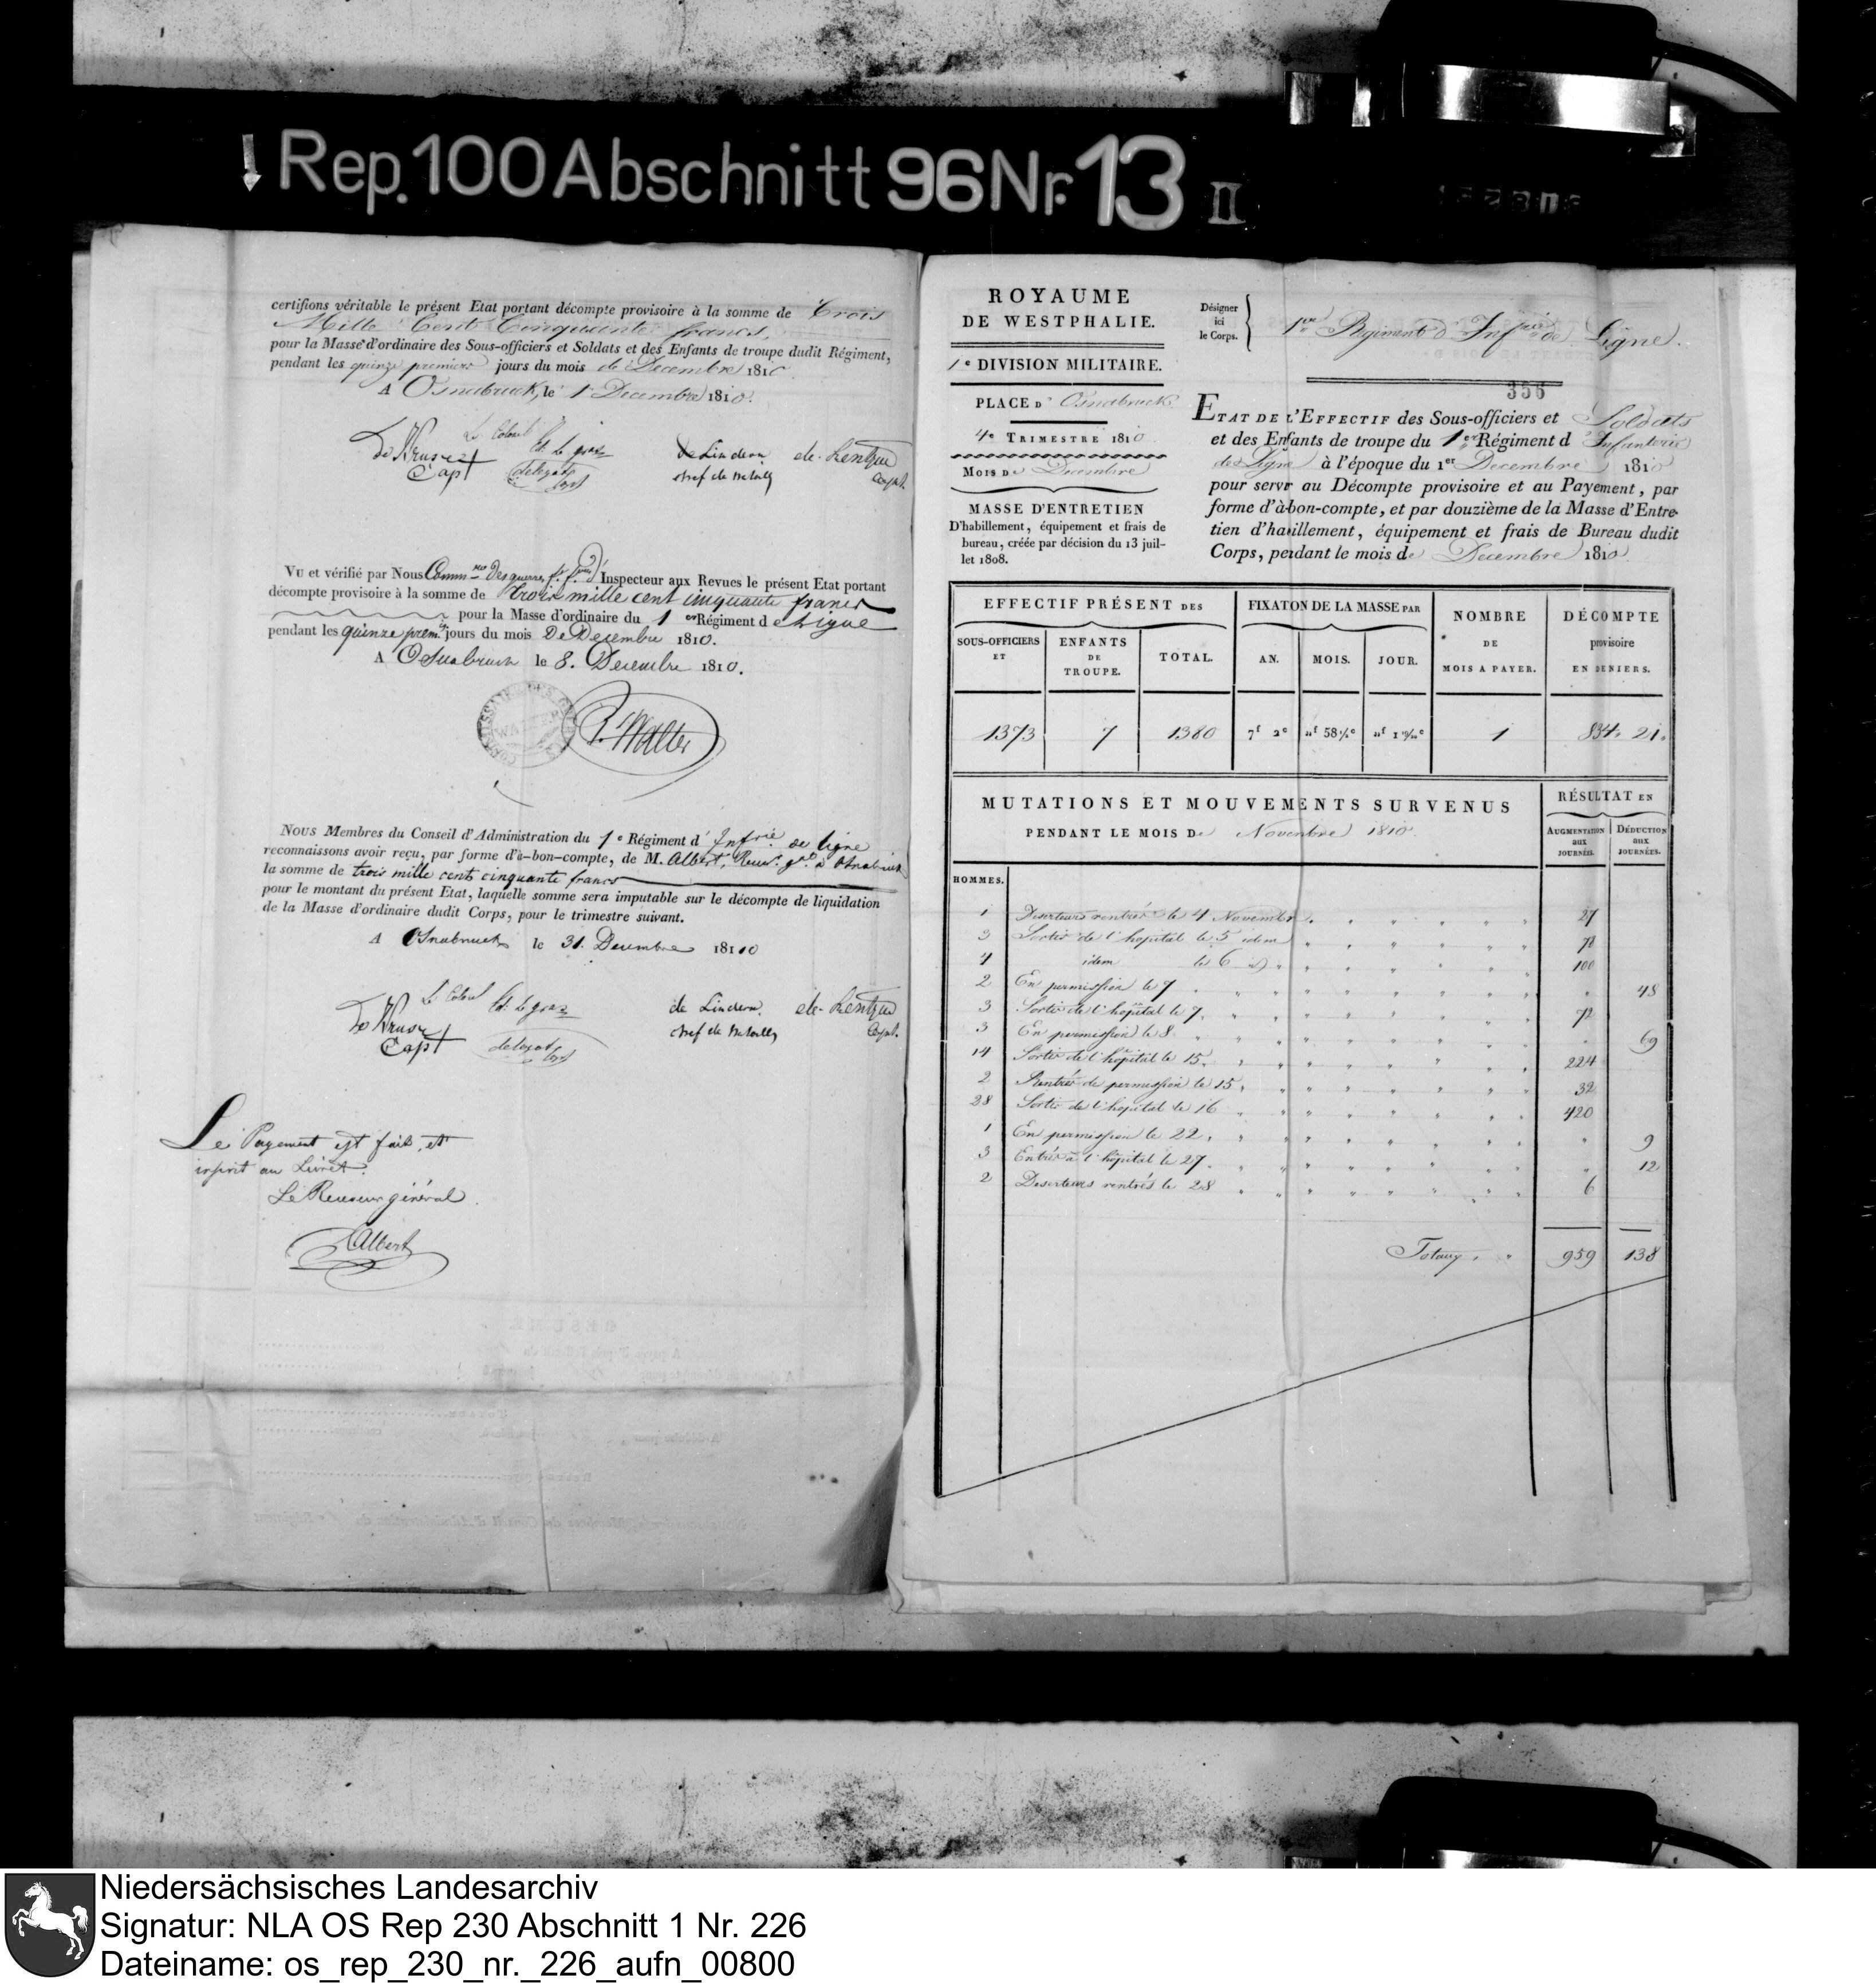 Rep. 100 Abschnitt 96 Nr. 13 II
certifions véritable le présent Etat portant décompte provisoire à la somme de Trois
Mille Cent Cinquante francs,
pour la Masse d'ordinaire des Sous-officiers et Soldats et des Enfants de troupe dudit Régiment,
pendant les quinze premiers jours du mois de Decembre 1810
A Osnabruck, le 1 Decembre 1810.
Le Colonel
De Kruse
Capt
de Lindern
chef de Bataill
de Lentzue
Capt.
Vu et vérifié par Nous Commre Des guerres, Inspecteur aux Revues le présent Etat portant
décompte provisoire à la somme de trois mille cent cinquante francs
pour la Masse d'ordinaire du 1er Régiment de Ligne
pendant les quinze prem. jours du mois De Decembre 1810.
A Osnabruck le 8. Decembre 1810.
P. Walter
Nous Membres du Conseil d'Administration du 1e Régiment d'Infrie de ligne
reconnaissons avoir reçu, par forme d'à-bon-compte, de M. Albert, Recev. gal à Osnabruck
la somme de trois mille cent cinquante francs
pour le montant du présent Etat, laquelle somme sera imputable sur le décompte de liquidation
de la Masse d'ordinaire dudit Corps, pour le trimestre suivant.
A Osnabruck le 31. Decembre 1810
Le Colonel
De Kruse
Capt
de Lindern.
chef de Bataill
de Lentzue
Capt.
Le Payement est fait, et
inscrit au Livret.
Le Receveur général.
Albert
ROYAUME
DE WESTPHALIE.
1e DIVISION MILITAIRE.
PLACE d'Osnabruck
4e TRIMESTRE 1810
MOIS De Decembre
MASSE D'ENTRETIEN
D'habillement, équipement et frais de
bureau, créée par décision du 13 juil-
let 1808.
Désigner
ici
le Corps.
1er Regiment d'Infrie de Ligne.
356
ETAT DE L'EFFECTIF des Sous-officiers et Soldats
et des Enfants de troupe du 1er Régiment d'Infanterie
de Ligne à l'époque du 1er Decembre 1810
pour servir au Décompte provisoire et au Payement, par
forme d'à-bon-compte, et par douzième de la Masse d'Entre-
tien d'habillement, équipement et frais de Bureau dudit
Corps, pendant le mois de Decembre 1810.
EFFECTIF PRÉSENT DES
FIXATON DE LA MASSE PAR
NOMBRE
DE
MOIS A PAYER.
DÉCOMPTE
provisoire
EN DENIERS.
SOUS-OFFICIERS
ET
ENFANTS
DE
TROUPE.
TOTAL.
AN.
MOIS.
JOUR.
1373 7 1380 7f 2c 58 1 1 834. 21.
MUTATIONS ET MOUVEMENTS SURVENUS
PENDANT LE MOIS De Novembre 1810.
RÉSULTAT EN
AUGMENTATION
aux
JOURNÉES.
DÉDUCTION
aux
JOURNÉES.
HOMMES.
1 Deserteurs rentrés le 4 Novembre. 27
3 Sortis de l'hopital le 5 idem 78
4 idem le 6 100
2 En permission le 7 48
3 Sortis de l'hopital le 7. 72
3 En permission le 8 69
14 Sortis de l'hôpital le 15. 224
2 Rentrés de permission le 15. 32
28 Sortis de l'hopital le 16 420
1 En permission le 22. 9
3 Entrés à l'hôpital le 27. 12
2 Deserteurs rentrés le 28 6
Totaux 959 138
Niedersächsisches Landesarchiv
Signatur: NLA OS Rep 230 Abschnitt 1 Nr. 226
Dateiname: os_rep_230_nr._226_aufn_00800